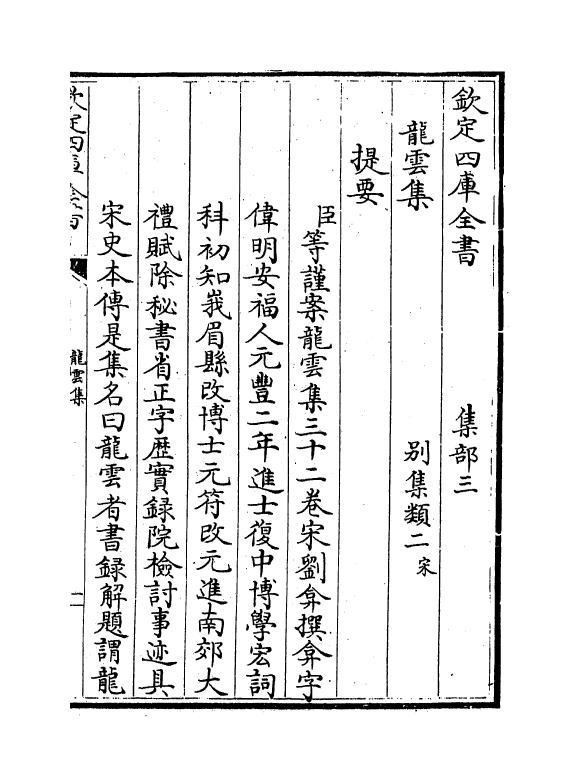 欽定四庫全書　集部三
龍雲集　別集類二宋
提要
臣等謹案龍雲集三十二卷宋劉弇撰弇字
偉明安福人元豐二年進士復中博學宏詞
科初知峩眉縣改博士元符改元進南郊大
禮賦除秘書省正字歴實録院檢討事迹具
宋史本傳是集名曰龍雲者書録解題謂龍
龍雲集
一